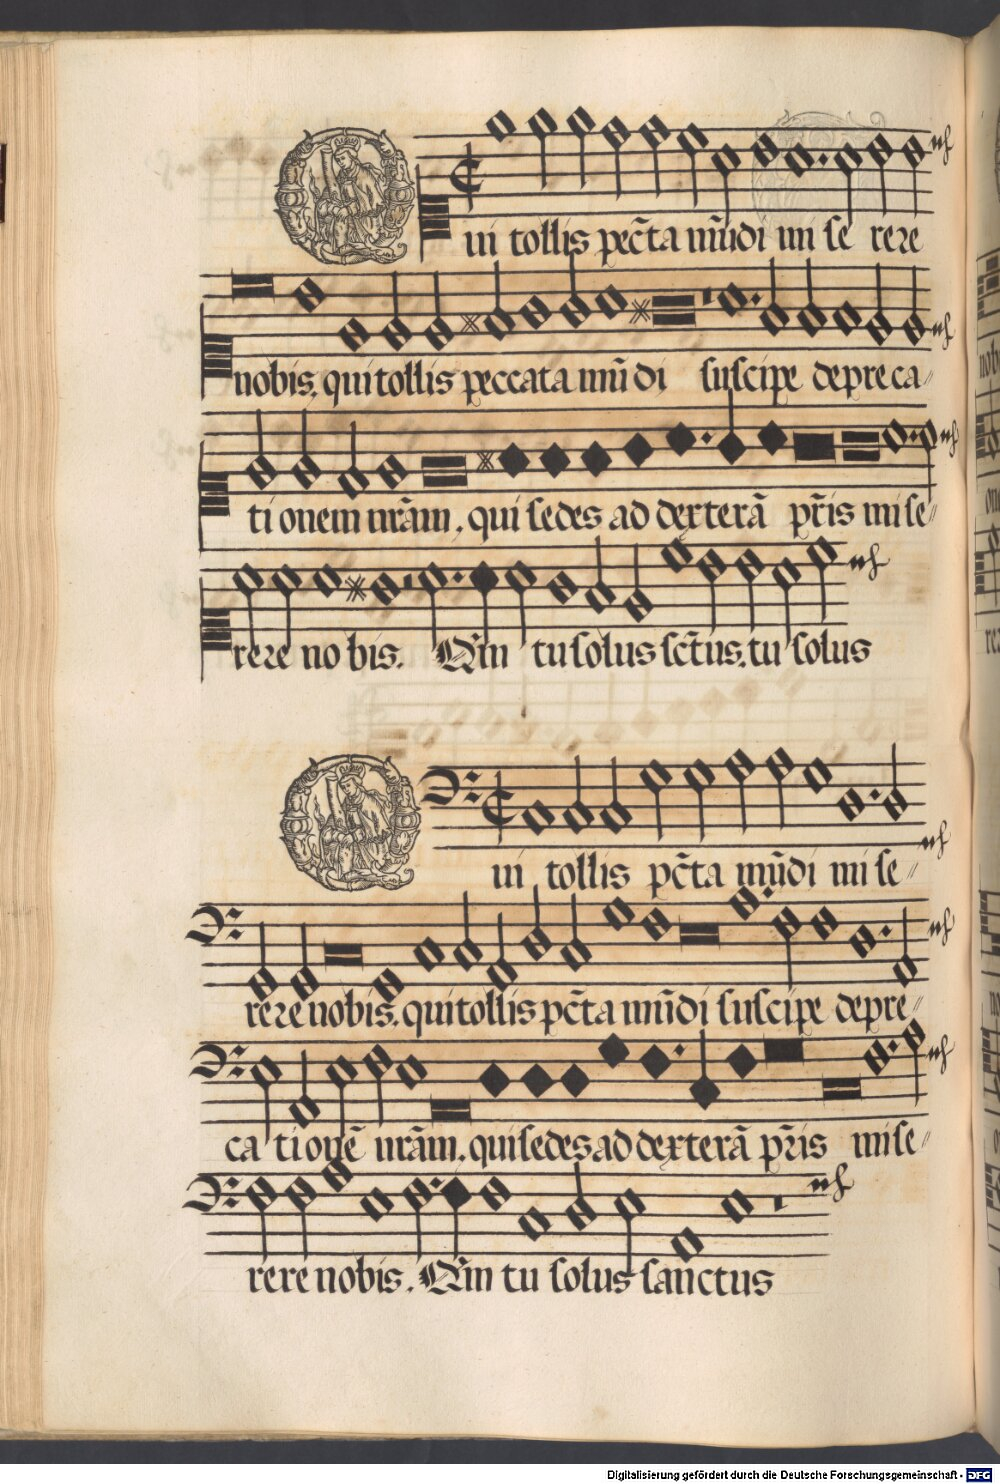 Qui tollis pecc̄ta mūdi mi se rere
nobis. qui tollis peccata mūdi suscipe depreca//
tionem nr̄am, qui sedes ad dexterā pr̄is mise//
rere nobis. Qm̄ tu solus sc̄tus. tu solus
Qui tollis pc̄ta mūdi mi se//
rere nobis. qui tollis pc̄ta mūdi suscipe depre//
ca tionē nr̄am. qui sedes ad dexterā pr̄is mise//
rere nobis. Qm̄ tu solus sanctus
Digitalisierung gefördert durch die Deutsche Forschungsgemeinschaft - DFG